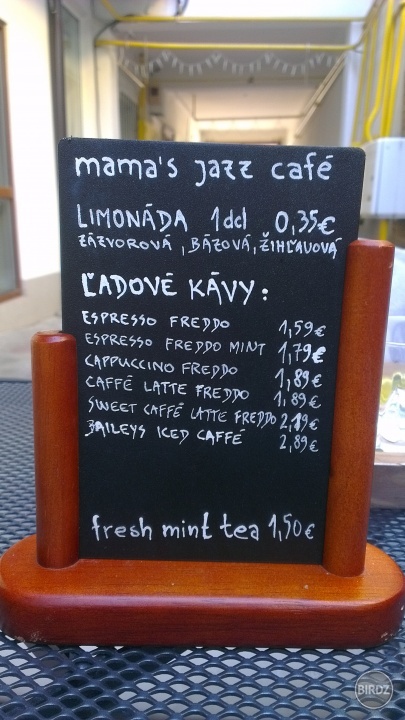 mama's jazz café
LIMONÁDA 1dcl 0,35€
ZÁZVOROVÁ, BÁZOVÁ, ŽIHĽAVOVÁ
ĽADOVÉ KÁVY:
ESPRESSO FREDDO 1,59€
ESPRESSO FREDDO MINT 1,79€
CAPPUCCINO FREDDO 1,89€
CAFFÉ LATTE FREDDO 1,89€
SWEET CAFFÉ LATTE FREDDO 2,19€
BAILEYS ICED CAFFÉ 2,89€
fresh mint tea 1,50€
BIRDZ